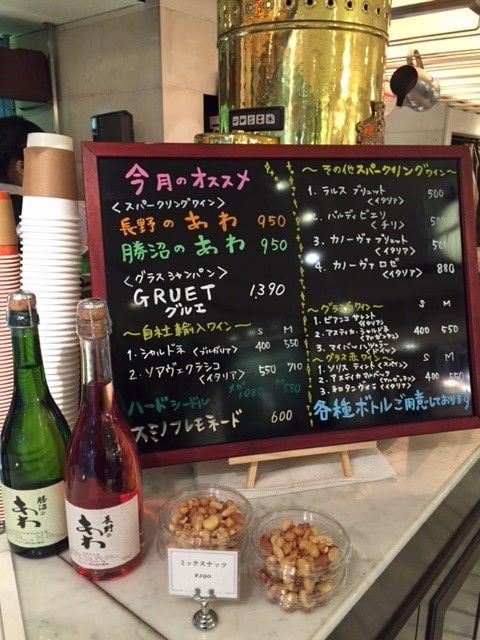 今月のオススメ
＜スパークリングワイン＞
長野の あわ 950
勝沼の あわ 950
＜グラスシャンパン＞
GRUET 1,390
グルエ
～自社輸入ワイン～ S M
1. シャルドネ ＜ブルガリア＞ 400 550
2. ソアヴェクラシコ
＜イタリア＞ 550 710
ハードシードル
スミノフレモネード 600
～その他スパークリングワイン～
1. ラルス ブリュット
＜イタリア＞ 500
2. バルディビエソ
＜チリ＞ 500
3. カノーヴァ ブリュット
＜イタリア＞ 500
4. カノーヴァ ロゼ
＜イタリア＞ 880
～グラス白ワイン～ S M
1. ビアンコ サンレト
＜イタリア＞
2. アスティカ
＜アルゼンチン＞ 400 550
3.
～グラス赤ワイン～ S M
1. ソリス ティント ＜スペイン＞
2. アスティカ
＜アルゼンチン＞ 400 550
3.
＜イタリア＞
各種ボトルご用意しております
勝沼の
あわ
長野の
あわ
ミックスナッツ
¥290